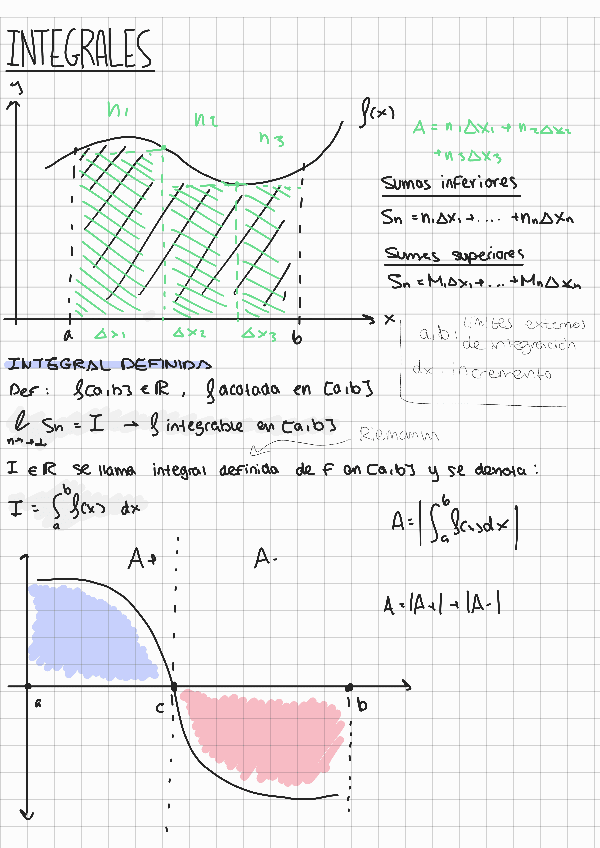 INTEGRALES
y
n1 n2 n3
f(x)
A = n1Δx1 + n2Δx2
+ n3Δx3
Sumas inferiores
Sn = n1Δx1 + .... + nnΔxn
Sumas superiores
Sn = M1Δx1 + ... + MnΔxn
a b x
Δx1 Δx2 Δx3
a,b: límites extremos
de integración
dx: incremento
INTEGRAL DEFINIDA
Def: f[a,b] ∈ ℝ, f acotada en [a,b]
Sn = I → f integrable en [a,b]
Riemann
I ∈ ℝ se llama integral definida de F en [a,b] y se denota:
I = ∫ₐᵇ f(x) dx
A = |∫ₐᵇ f(x)dx|
A+ A-
A = |A+| + |A-|
a c b